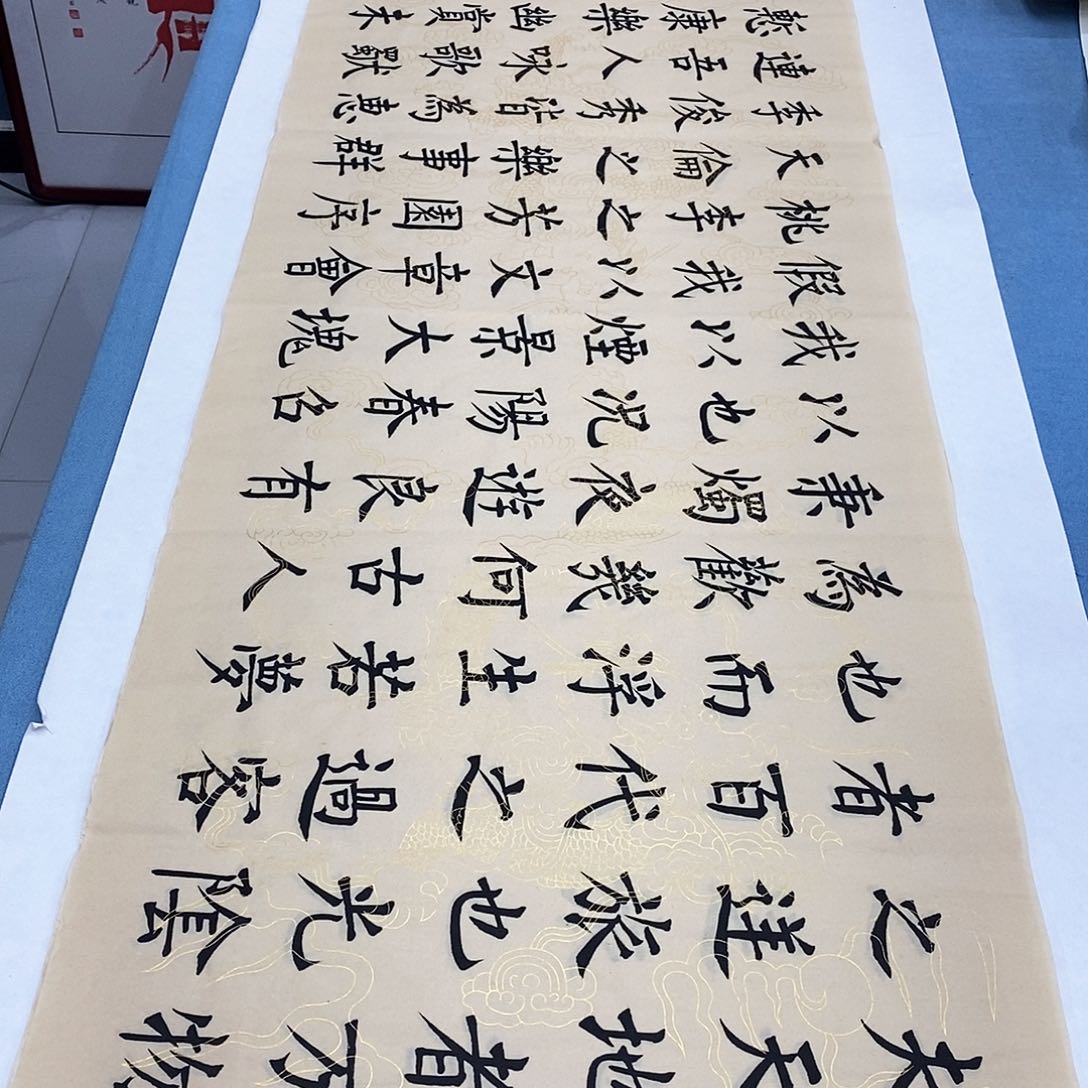 夫天地者万物
之逆旅也光陰
者百代之過客
也而浮生若夢
為歡幾何古人
秉燭夜遊良有
以也況陽春召
我以煙景大塊
假我以文章會
桃李之芳園序
天倫之樂事群
季俊秀皆為惠
連吾人咏歌獨
慙康樂幽賞未